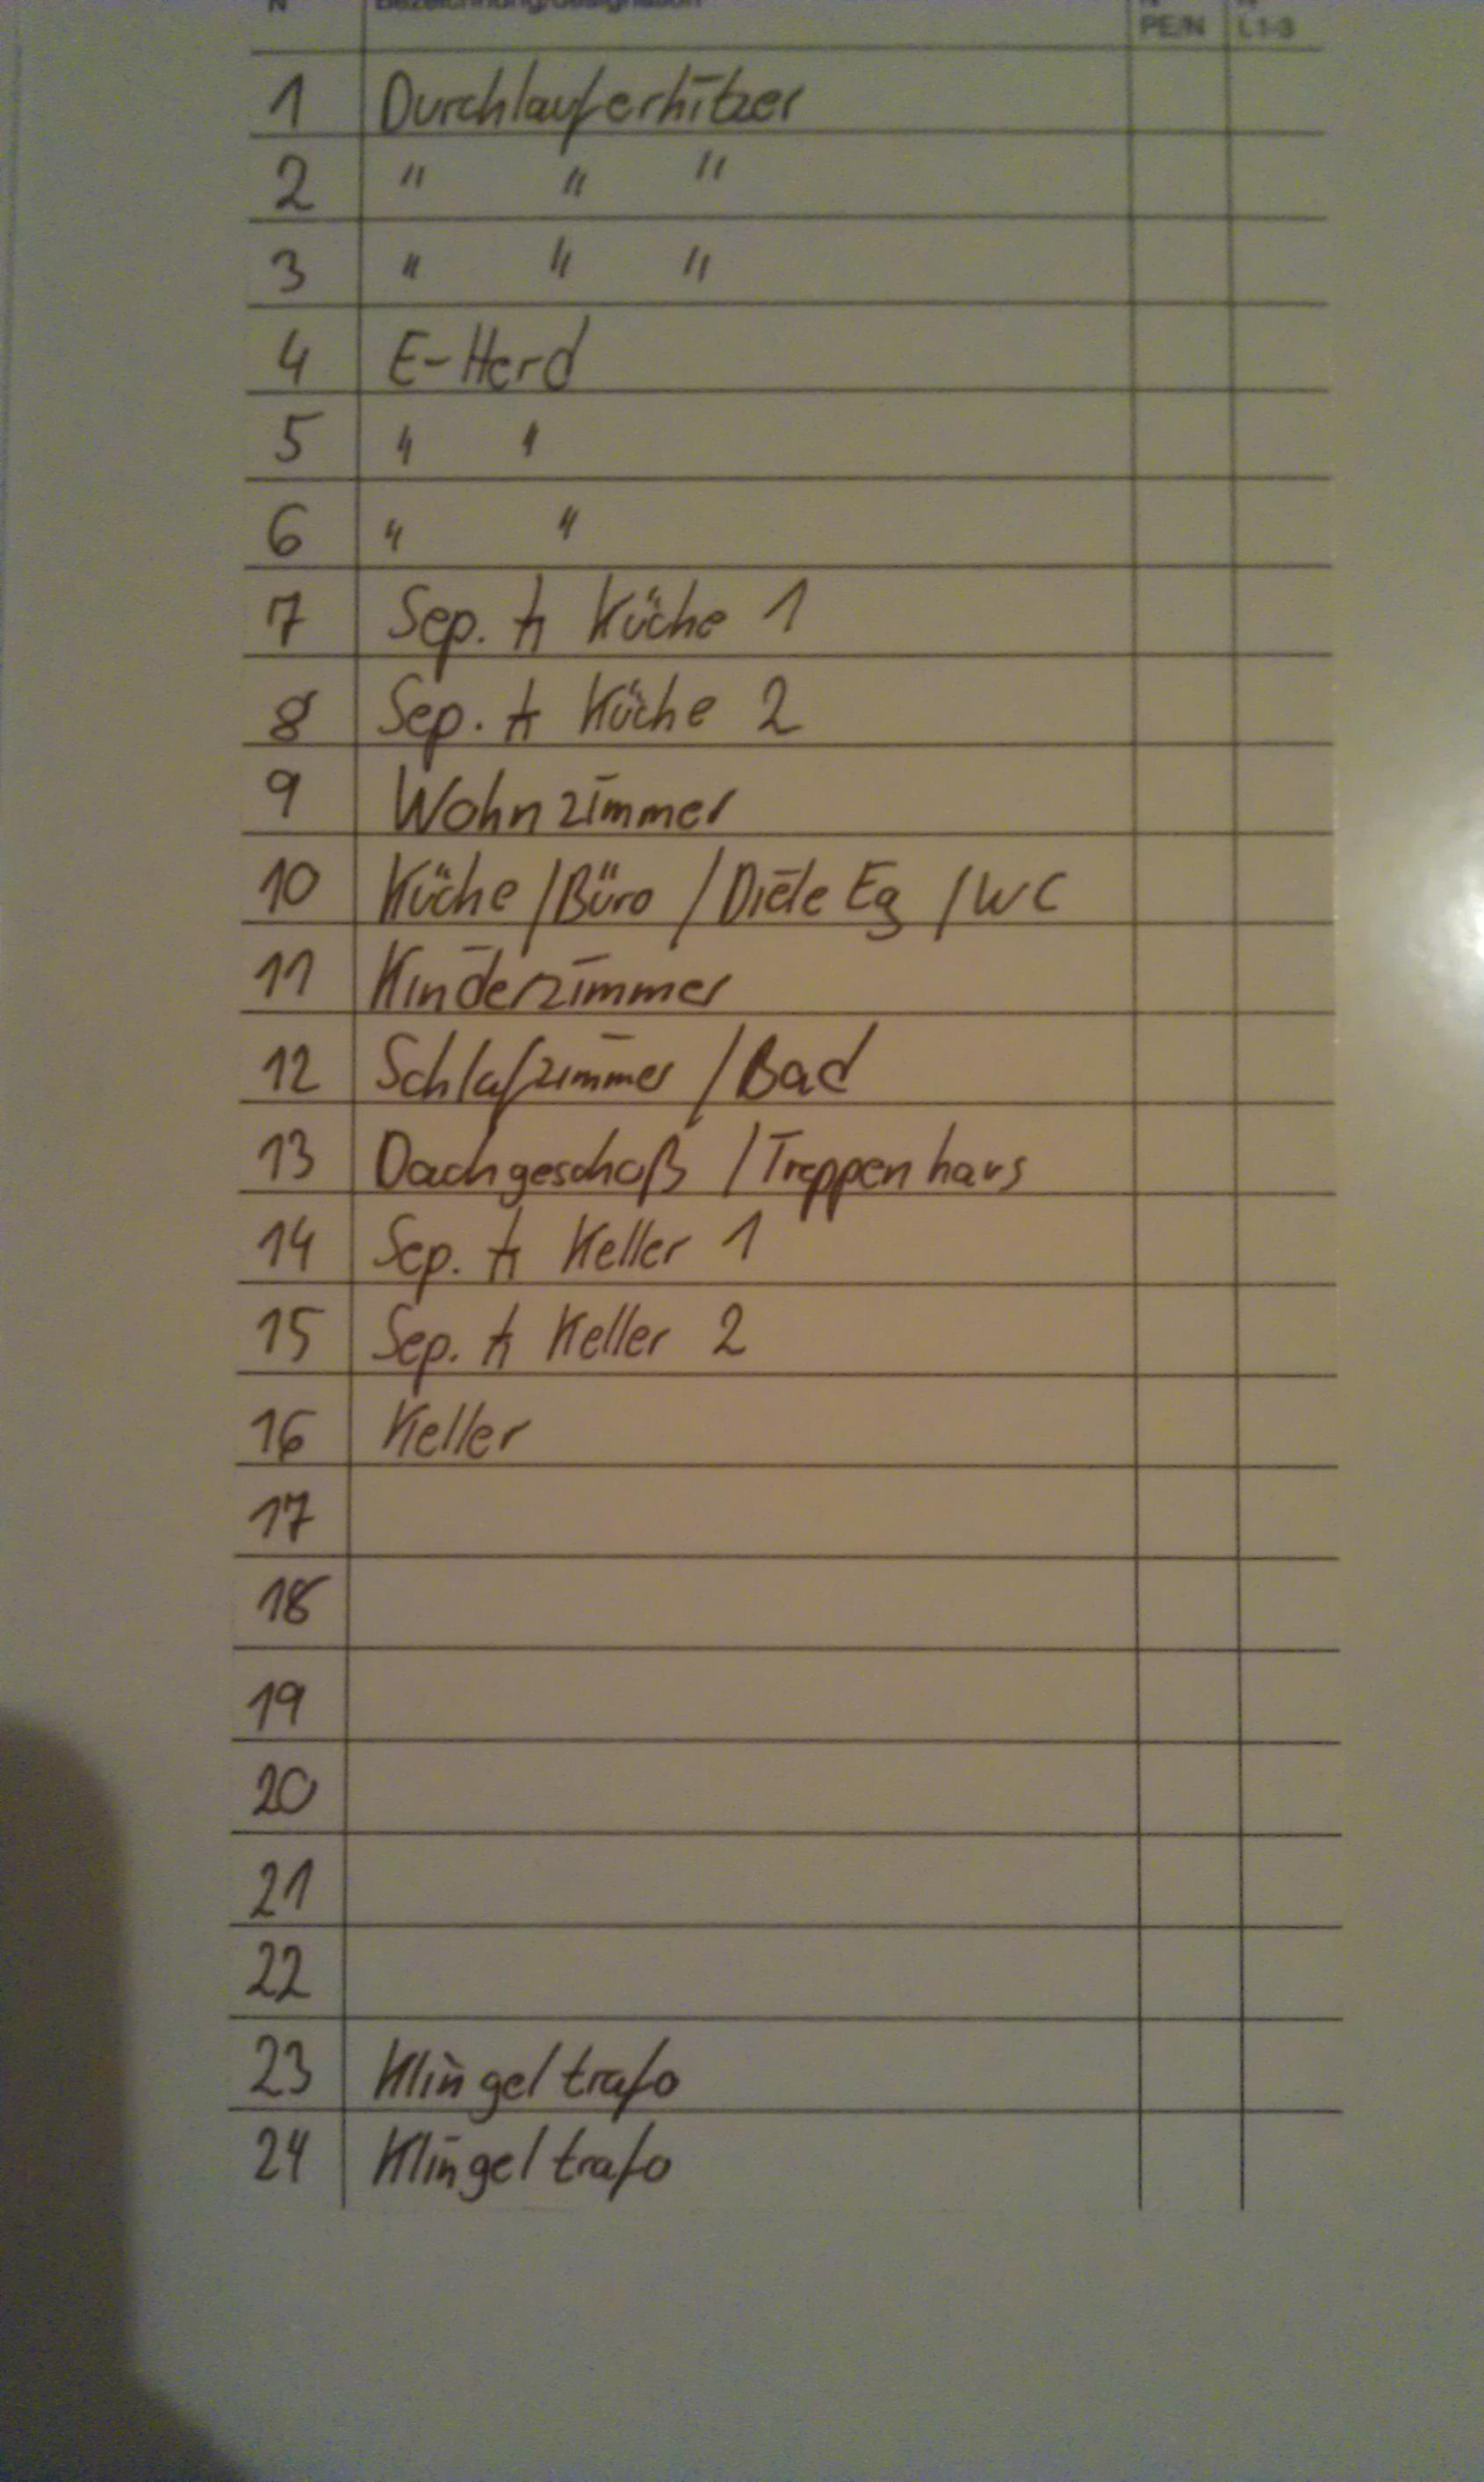 N Bezeichnung/designation N PE/N N L1-3
1 Durchlauferhitzer
2 " " "
3 " " "
4 E-Herd
5 " "
6 " "
7 Sep. Küche 1
8 Sep. Küche 2
9 Wohnzimmer
10 Küche/Büro/Diele Eg/WC
11 Kinderzimmer
12 Schlafzimmer/Bad
13 Dachgeschoß/Treppenhaus
14 Sep. Keller 1
15 Sep. Keller 2
16 Keller
17
18
19
20
21
22
23 Klingeltrafo
24 Klingeltrafo